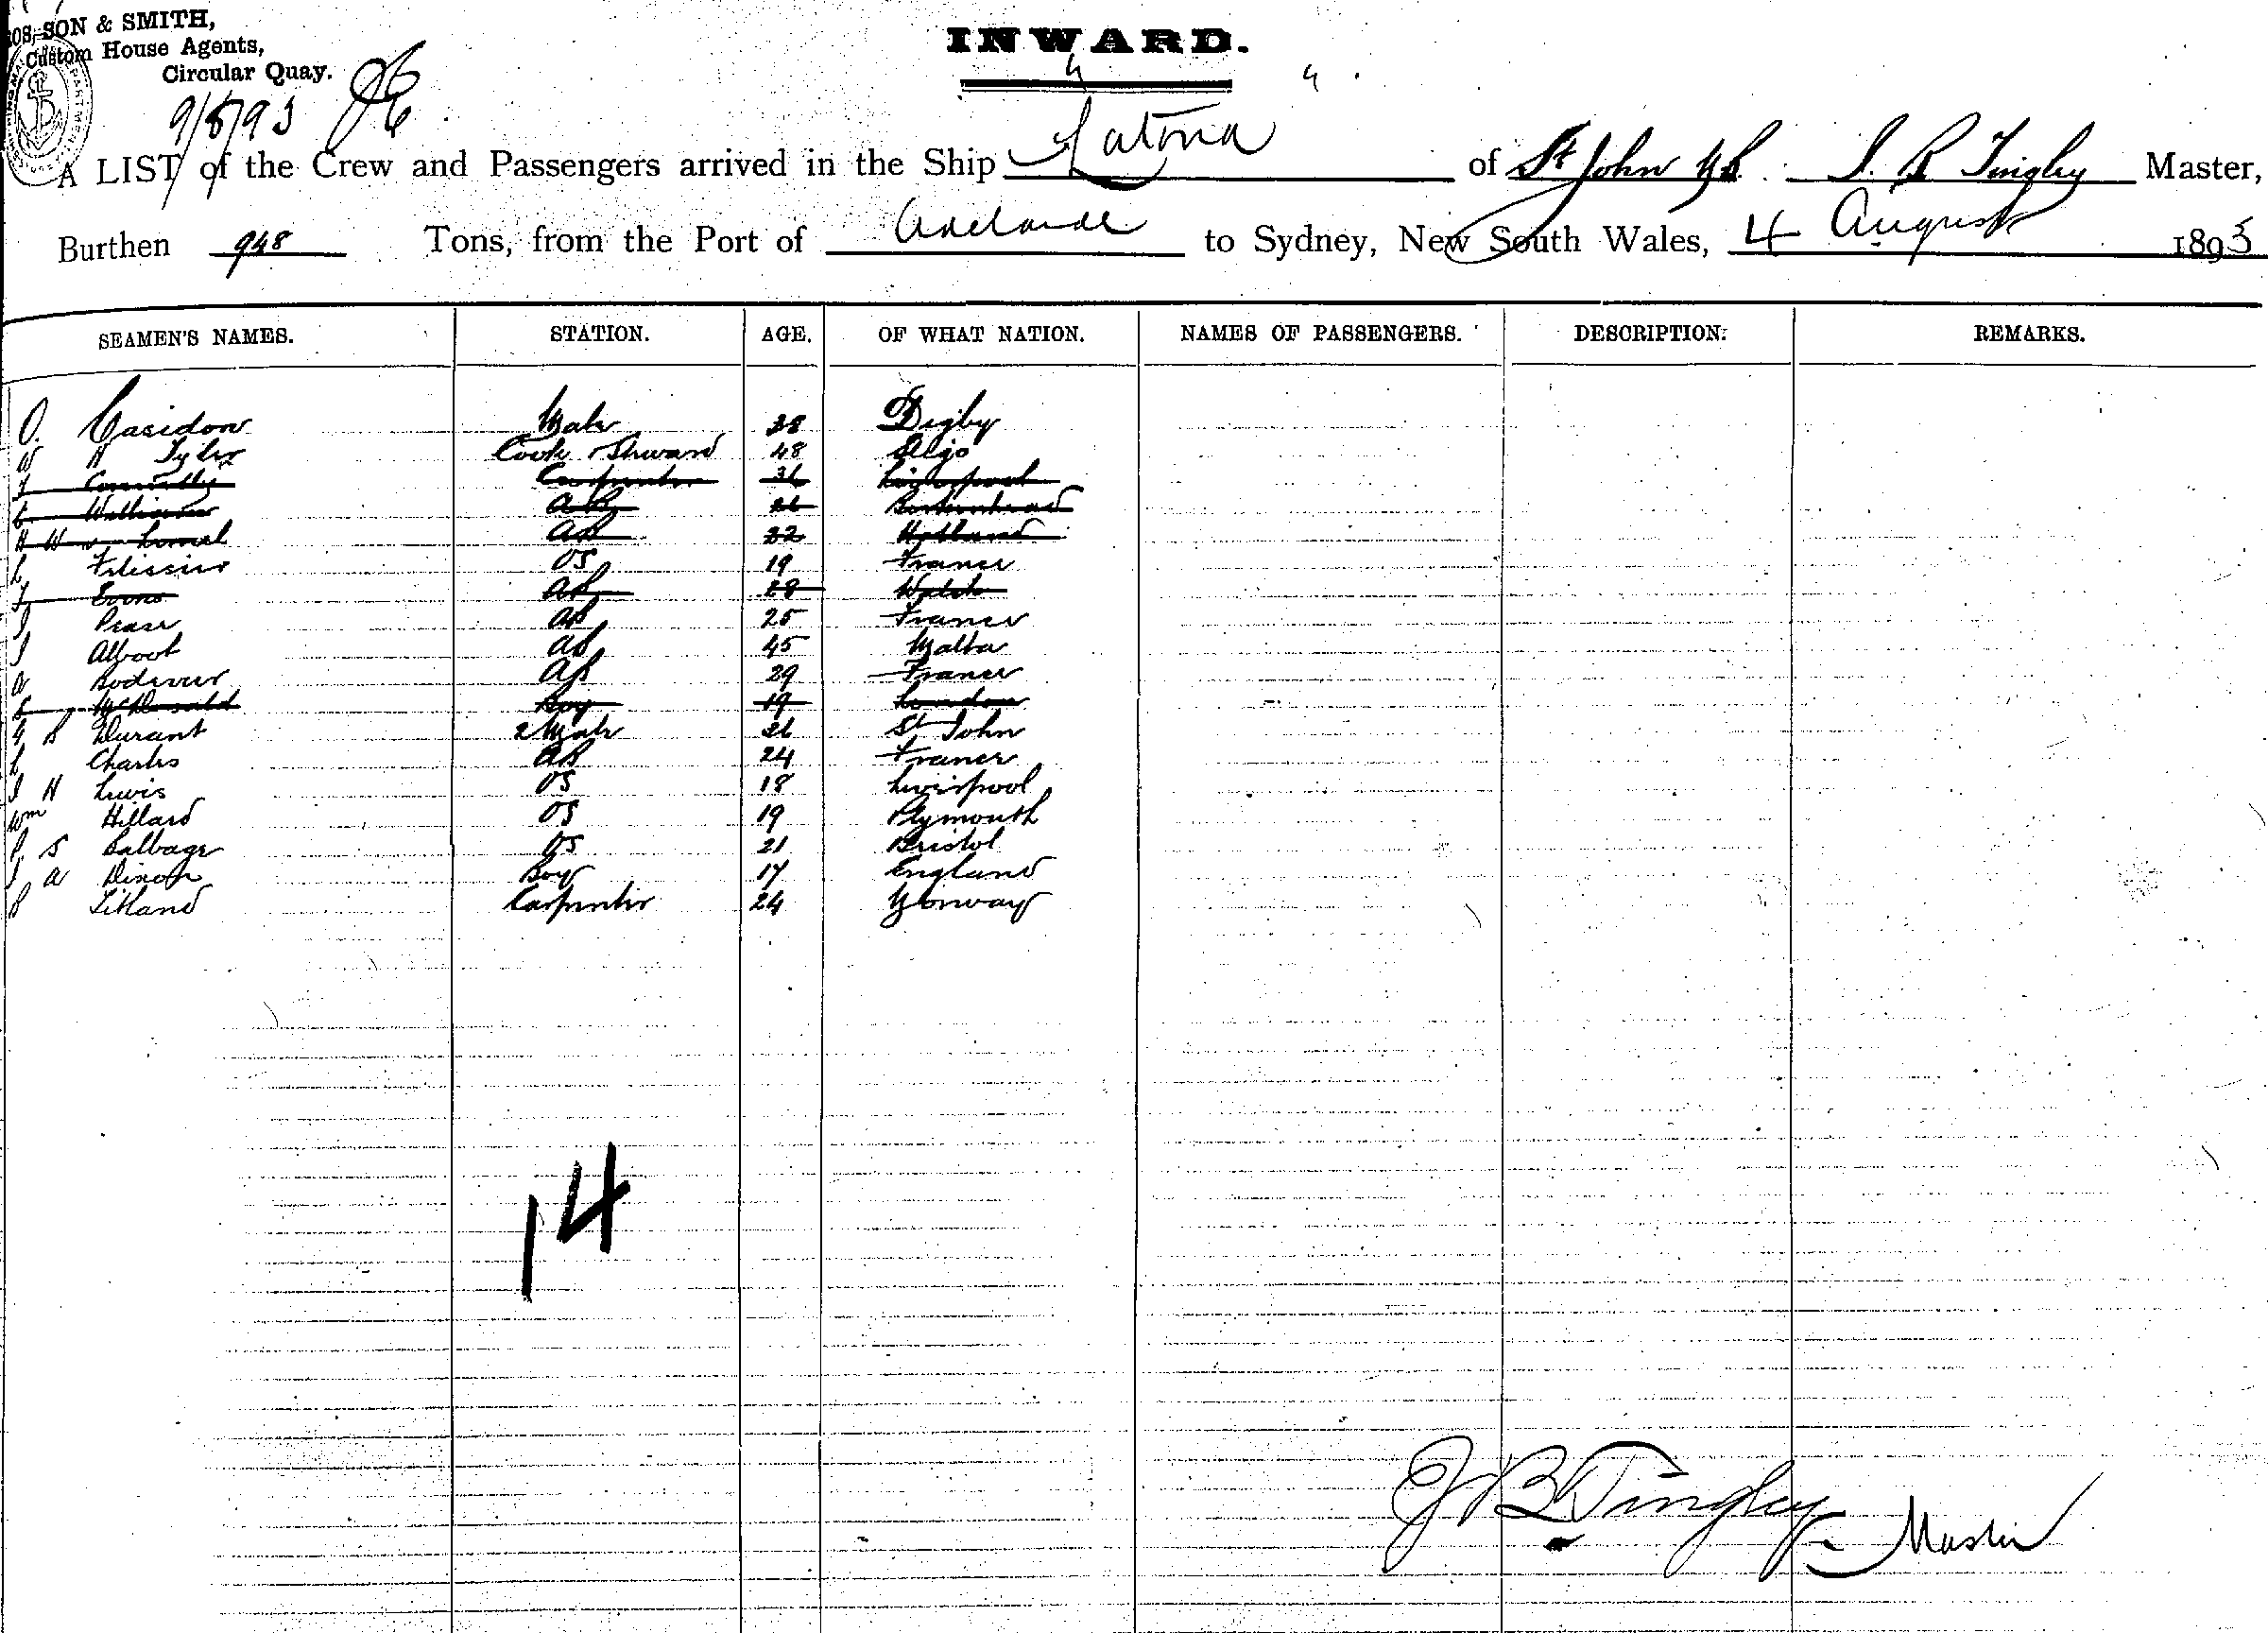 SON & SMITH,
Custom House Agents,
Circular Quay.
9/8/93
INWARD.
A LIST of the Crew and Passengers arrived in the Ship Latona of St John NB. J. B Tingley Master,
Burthen 948 Tons, from the Port of Adelaide to Sydney, New South Wales, 4 August 1893
SEAMEN'S NAMES. STATION. AGE. OF WHAT NATION. NAMES OF PASSENGERS. DESCRIPTION. REMARKS.
O. Mate 38 Digby
W H Tyler Cook & Steward 48 Sligo
Connolly Carpenter 36 Liverpool
AB 26 Birkenhead
H W v AB 32 Holland
L OS 19 France
Evans AB 28 Welsh
AB 25 France
J AB 45 Malta
AB 29 France
McDonald Boy 19 London
G B Durant 2 Mate 26 St John
L Charles AB 24 France
J H Lewis OS 18 Liverpool
Wm Hillard OS 19 Plymouth
P S Balbage OS 21 Bristol
J A Dixon Boy 17 England
Carpenter 24 Norway
14
J B Tingley Master